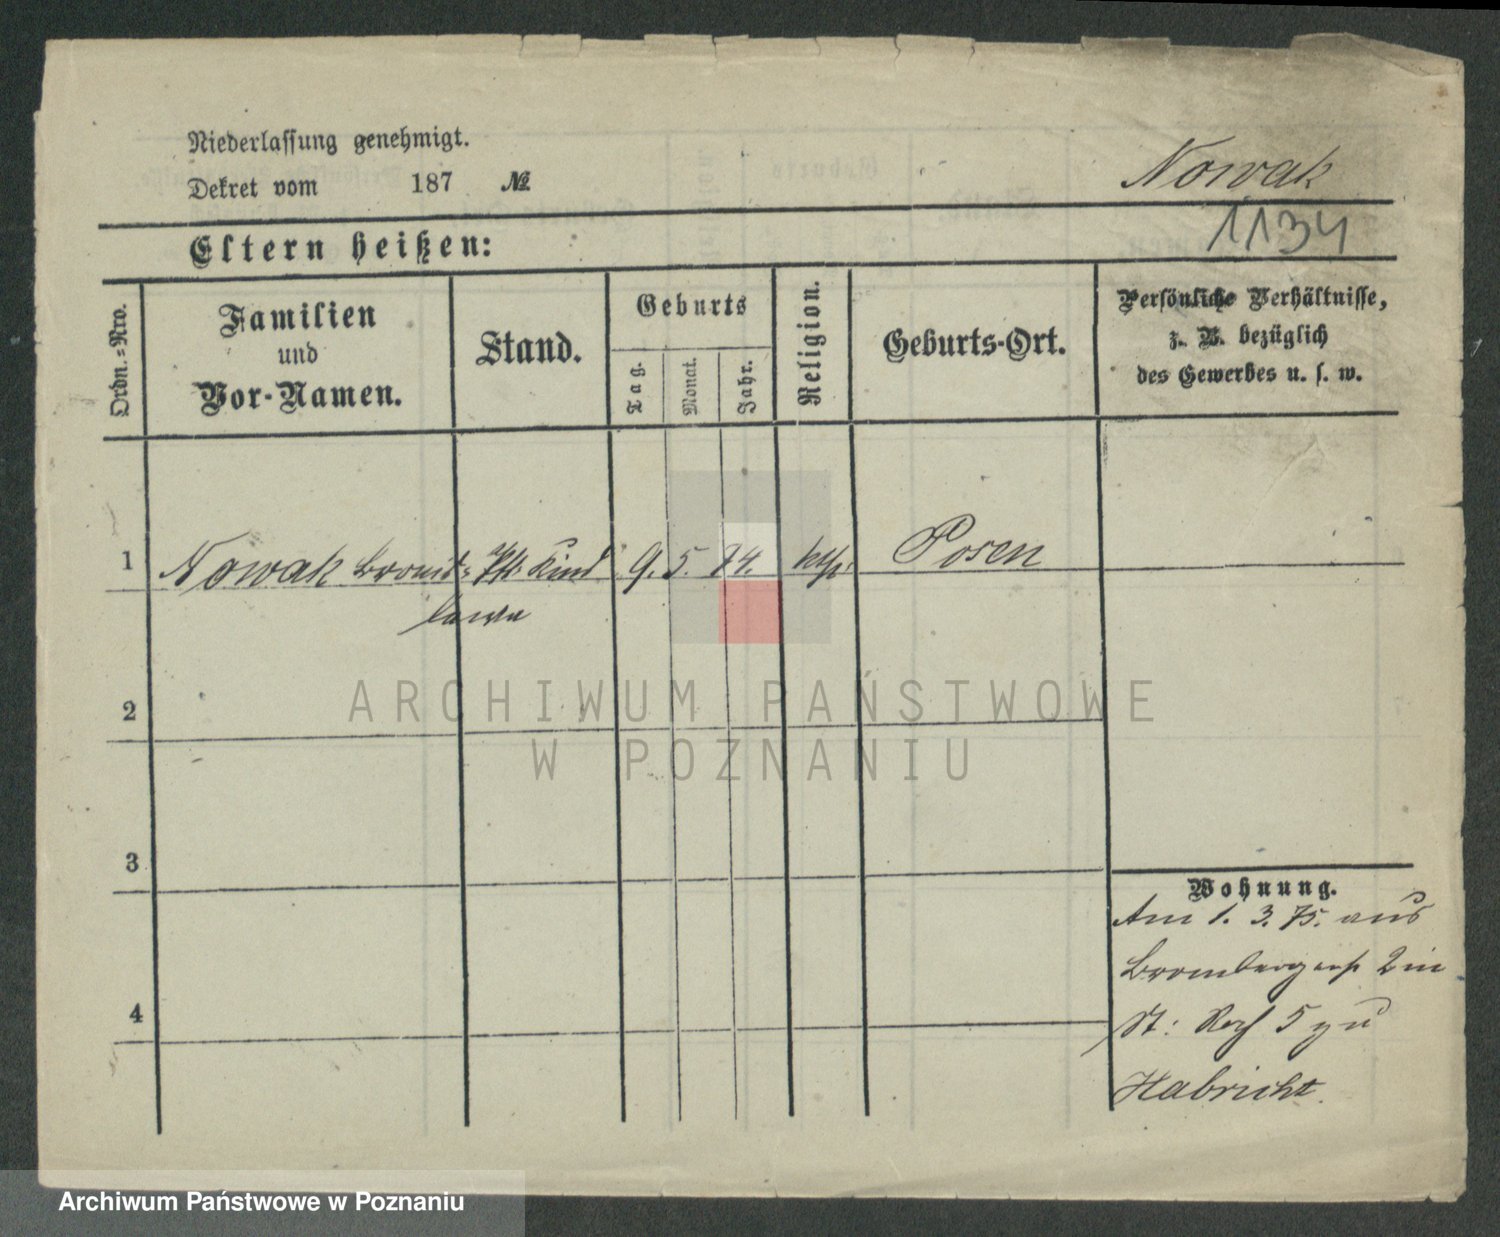 Niederlassung genehmigt.
Dekret vom 187 №
Nowak
1134
Eltern heißen:
Ordn.=Nro.
Familien
und
Vor-Namen.
Stand.
Geburts
Tag.
Monat.
Jahr.
Religion.
Geburts-Ort.
Persönliche Verhältnisse,
z. B. bezüglich
des Gewerbes u. s. w.
1 Nowak Bronis= Kind 9. 5. 74. kth. Posen
lawa
2
ARCHIWUM PAŃSTWOWE
W POZNANIU
3
4
Wohnung.
Am 1. 3. 75. aus
Brombergerst 2 in
St: 5 zu
Habricht.
Archiwum Państwowe w Poznaniu